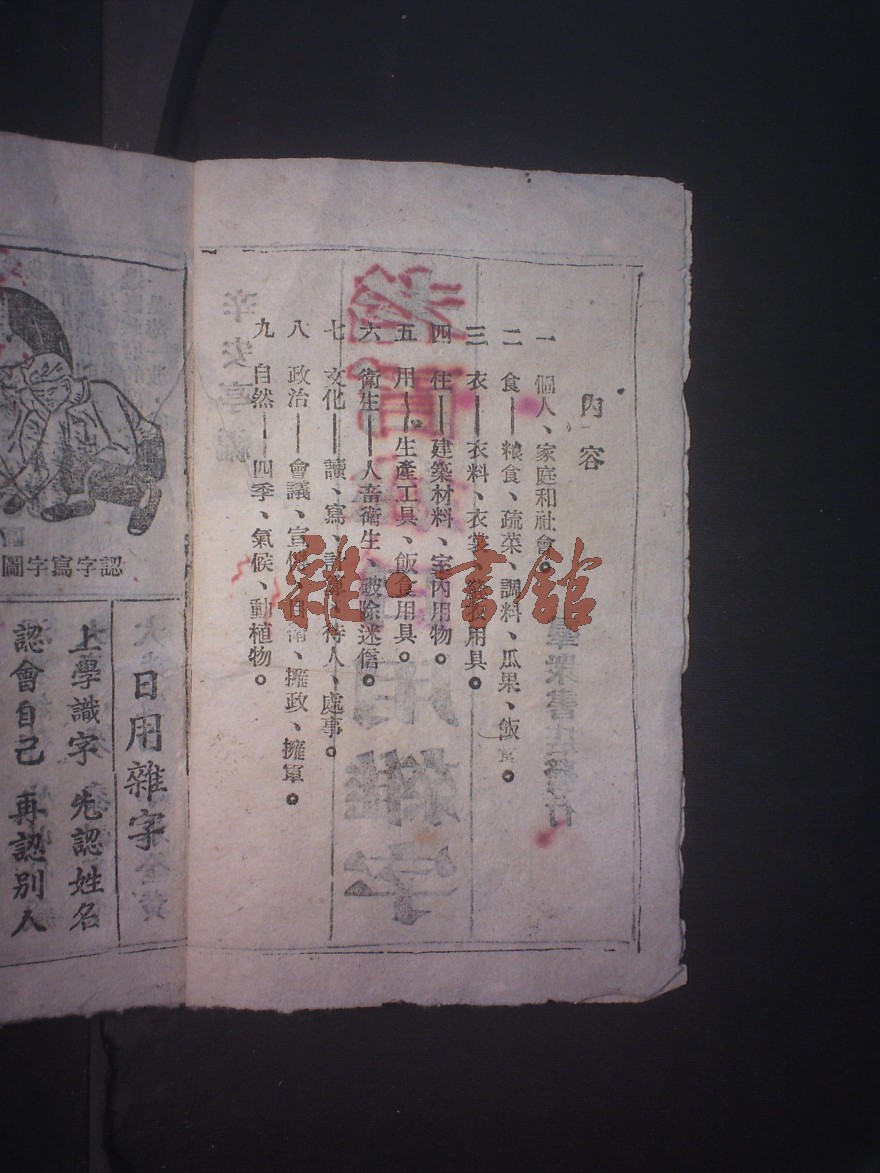 內容
一 個人、家庭和社會。
二 食——粮食、疏菜、調料、瓜果、飯
三 衣——衣料、衣裳、用具。
四 住——建築材料、室內用物。
五 用——生產工具、飯食用具。
六 衞生——人畜衞生、破除迷信。
七 文化——讀、寫、待人、處事。
八 政治——會議、宣、自衞、擁政、擁軍。
九 自然——四季、氣候、動植物。
雜·書館
認字寫字圖
日用雜字
上學識字 先認姓名
認會自己 再認別人
辛安亭編
日用雜字
羣眾書店發行